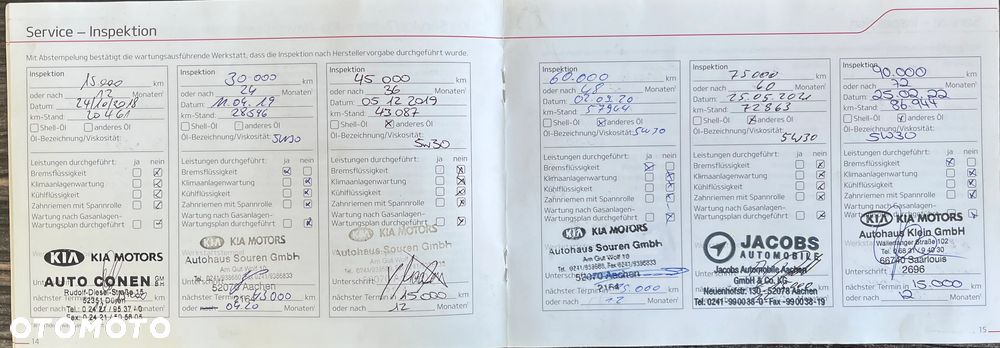 Service – Inspektion
Mit Abstempelung bestätigt die wartungsausführende Werkstatt, dass die Inspektion nach Herstellervorgabe durchgeführt wurde.
Inspektion
15000 km
oder nach 12 Monaten¹
Datum: 24/10/2018
km-Stand: 20461
Shell-Öl anderes Öl
Öl-Bezeichnung/Viskosität:
Leistungen durchgeführt: ja nein
Bremsflüssigkeit
Klimaanlagenwartung
Kühlflüssigkeit
Zahnriemen mit Spannrolle
Wartung nach Gasanlagen-
Wartungsplan durchgeführt
KIA KIA MOTORS
AUTO CONEN GMBH
Rudolf-Diesel-Straße 15
52351 Düren
14
Inspektion
30.000 km
oder nach 24 Monaten¹
Datum: 11.04.19
km-Stand: 28596
Shell-Öl anderes Öl
Öl-Bezeichnung/Viskosität: 5W30
Leistungen durchgeführt: ja nein
Bremsflüssigkeit
Klimaanlagenwartung
Kühlflüssigkeit
Zahnriemen mit Spannrolle
Wartung nach Gasanlagen-
Wartungsplan durchgeführt
KIA KIA MOTORS
Autohaus Souren GmbH
Am Gut Wolf 10
52070 Aachen
2164
nächster Termin in 45000
oder nach 04.20
Inspektion
45 000 km
oder nach 36 Monaten¹
Datum: 05.12.2019
km-Stand: 43087
Shell-Öl anderes Öl
Öl-Bezeichnung/Viskosität:
5W30
Leistungen durchgeführt: ja nein
Bremsflüssigkeit
Klimaanlagenwartung
Kühlflüssigkeit
Zahnriemen mit Spannrolle
Wartung nach Gasanlagen-
Wartungsplan durchgeführt
KIA MOTORS
Autohaus Souren GmbH
Am Gut Wolf 10
nächster Termin in 15000 km
oder nach 12 Monaten
Inspektion
60.000 km
oder nach 48 Monaten¹
km-Stand: 57964
Shell-Öl anderes Öl
Öl-Bezeichnung/Viskosität: 5W30
Leistungen durchgeführt: ja nein
Bremsflüssigkeit
Klimaanlagenwartung
Kühlflüssigkeit
Zahnriemen mit Spannrolle
Wartung nach Gasanlagen-
Wartungsplan durchgeführt
KIA KIA MOTORS
Autohaus Souren GmbH
Am Gut Wolf 10
52070 Aachen
2164
oder nach 12
Inspektion
75000 km
oder nach 40 Monaten¹
Datum: 25.05.2021
km-Stand: 72863
Shell-Öl anderes Öl
Öl-Bezeichnung/Viskosität:
5W30
Leistungen durchgeführt: ja nein
Bremsflüssigkeit
Klimaanlagenwartung
Kühlflüssigkeit
Zahnriemen mit Spannrolle
Wartung nach Gasanlagen-
Wartungsplan durchgeführt
JACOBS
AUTOMOBILE
Jacobs Automobile Aachen
GmbH & Co. KG
Neuenhofstr. 130 - 52078 Aachen
Tel. 0241-990038-0 - Fax -990038-19
Inspektion
90.000 km
oder nach 72 Monaten¹
Datum: 25.02.22
km-Stand: 86944
Shell-Öl anderes Öl
Öl-Bezeichnung/Viskosität:
5W30
Leistungen durchgeführt: ja nein
Bremsflüssigkeit
Klimaanlagenwartung
Kühlflüssigkeit
Zahnriemen mit Spannrolle
Wartung nach Gasanlagen-
KIA KIA MOTORS
Autohaus Klein GmbH
66740 Saarlouis
2696
nächster Termin in 15.000 km
oder nach 12 Monaten
15
OTOMOTO